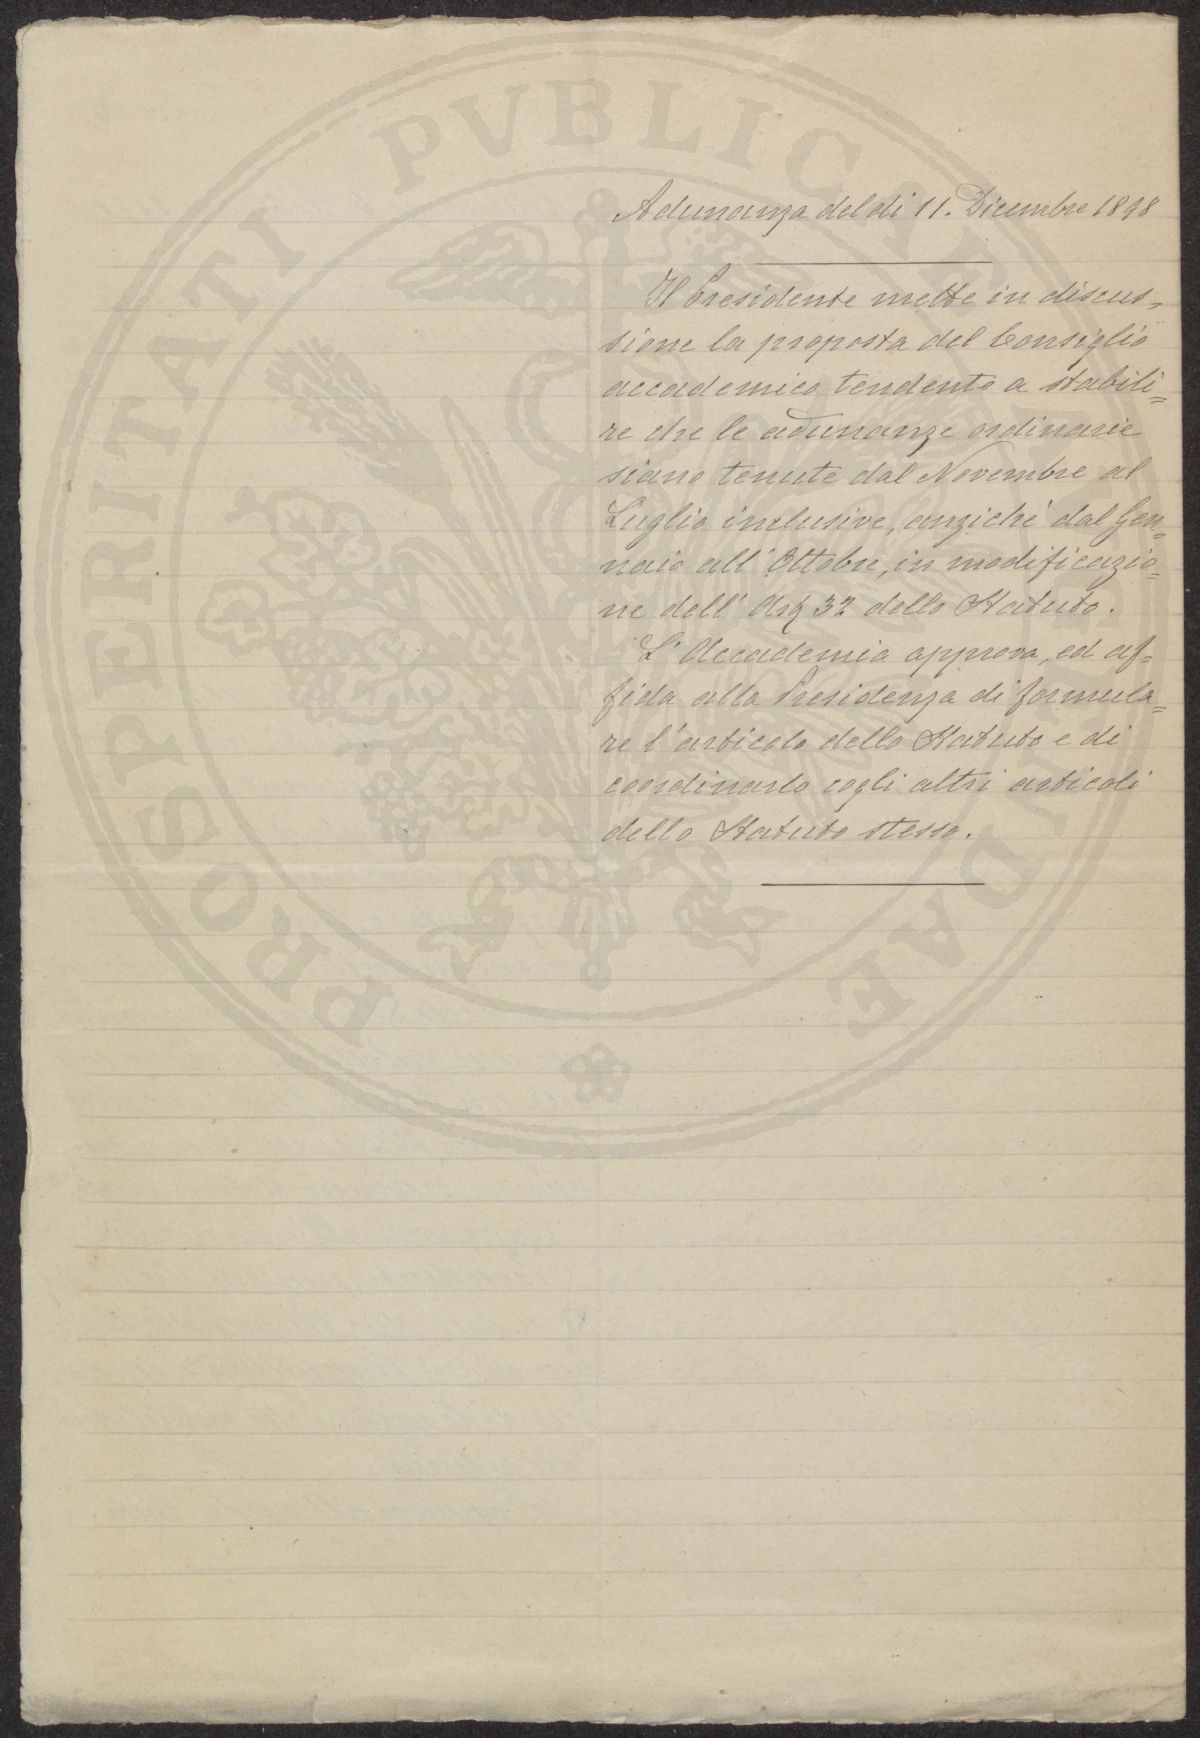 PROSPERITATI PVBLICAE AVGENDAE
Adunanza del di 11. Dicembre 1898
Il Presidente mette in discus=
sione la proposta del Consiglio
accademico tendente a stabili=
re che le adunanze ordinarie
siano tenute dal Novembre al
Luglio inclusive, anziché dal Gen=
naio all'Ottobre, in modificazio=
ne dell'Art 32 dello Statuto.
L'Accademia approva, ed af=
fida alla Presidenza di formula=
re l'articolo dello Statuto e di
coordinarlo cogli altri articoli
dello Statuto stesso.